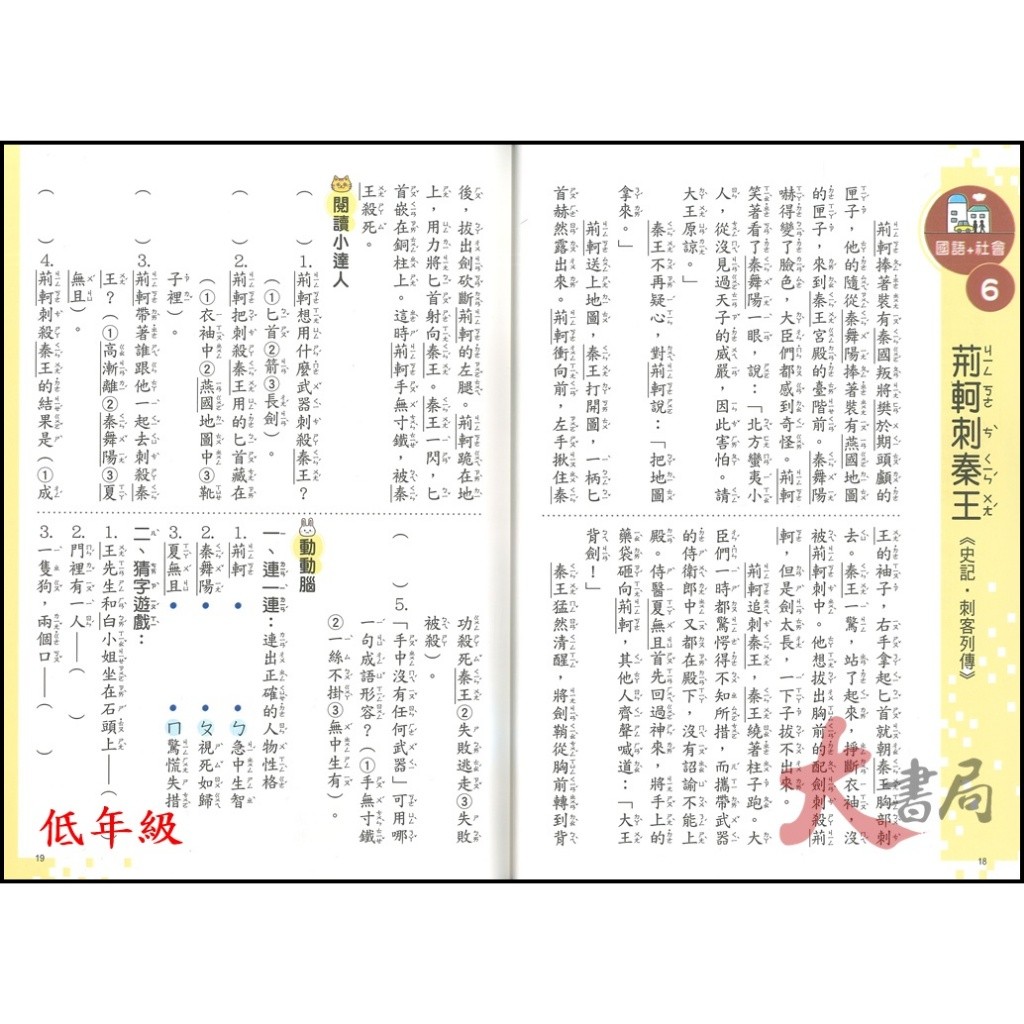 國語+社會
6
荊軻刺秦王
ㄐㄧㄥ ㄎㄜ ㄘˋ ㄑㄧㄣˊ ㄨㄤˊ
《史記・刺客列傳》
荊軻捧著裝有秦國叛將樊於期頭顱的
匣子，他的隨從秦舞陽捧著裝有燕國地圖
的匣子，來到秦王宮殿的臺階前。秦舞陽
嚇得變了臉色，大臣們都感到奇怪。荊軻
笑著看了秦舞陽一眼，說：「北方蠻夷小
人，從沒見過天子的威嚴，因此害怕。請
大王原諒。」
秦王不再疑心，對荊軻說：「把地圖
拿來。」
荊軻送上地圖，秦王打開圖，一柄匕
首赫然露出來。荊軻衝向前，左手揪住秦
王的袖子，右手拿起匕首就朝秦王胸部刺
去。秦王一驚，站了起來，掙斷衣袖，沒
被荊軻刺中。他想拔出胸前的配劍刺殺荊
軻，但是劍太長，一下子拔不出來。
荊軻追刺秦王，秦王繞著柱子跑。大
臣們一時都驚愕得不知所措，而攜帶武器
的侍衛郎中又都在殿下，沒有詔諭不能上
殿。侍醫夏無且首先回過神來，將手上的
藥袋砸向荊軻，其他人齊聲喊道：「大王
背劍！」
秦王猛然清醒，將劍鞘從胸前轉到背
18
後，拔出劍砍斷荊軻的左腿。荊軻跪在地
上，用力將匕首射向秦王。秦王一閃，匕
首嵌在銅柱上。這時荊軻手無寸鐵，被秦
王殺死。
閱讀小達人
（　）1.荊軻想用什麼武器刺殺秦王？
（①匕首②箭③長劍）。
（　）2.荊軻把刺殺秦王用的匕首藏在
（①衣袖中②燕國地圖中③靴
子裡）。
（　）3.荊軻帶著誰跟他一起去刺殺秦
王？（①高漸離②秦舞陽③夏
無且）。
（　）4.荊軻刺殺秦王的結果是（①成
功殺死秦王②失敗逃走③失敗
被殺）。
（　）5.「手中沒有任何武器」可用哪
一句成語形容？（①手無寸鐵
②一絲不掛③無中生有）。
動動腦
一、連一連：連出正確的人物性格
1.荊軻・　・ㄅ急中生智
2.秦舞陽・　・ㄆ視死如歸
3.夏無且・　・ㄇ驚慌失措
二、猜字遊戲：
1.王先生和白小姐坐在石頭上——（　）
2.門裡有一人——（　）
3.一隻狗，兩個口——（　）
低年級
19
大書局